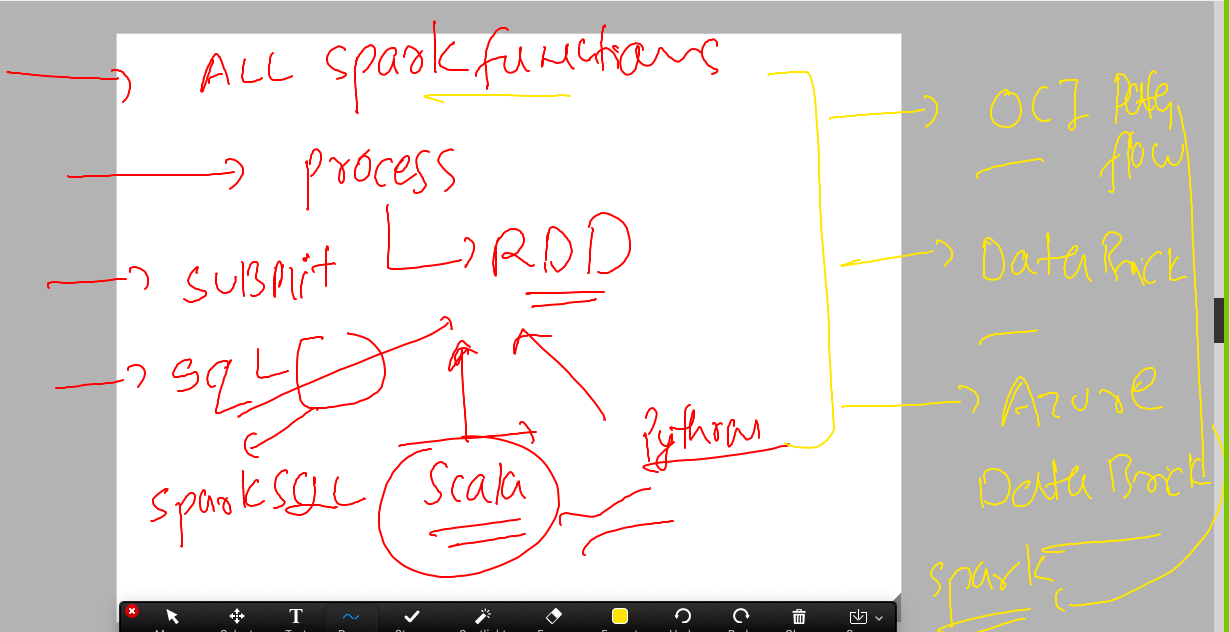 ALL spark functions
process
RDD
SUBMIT
SQL
sparkSQL
Scala
Python
OCI Data
flow
DataBrick
Azure
DataBrick
spark
T